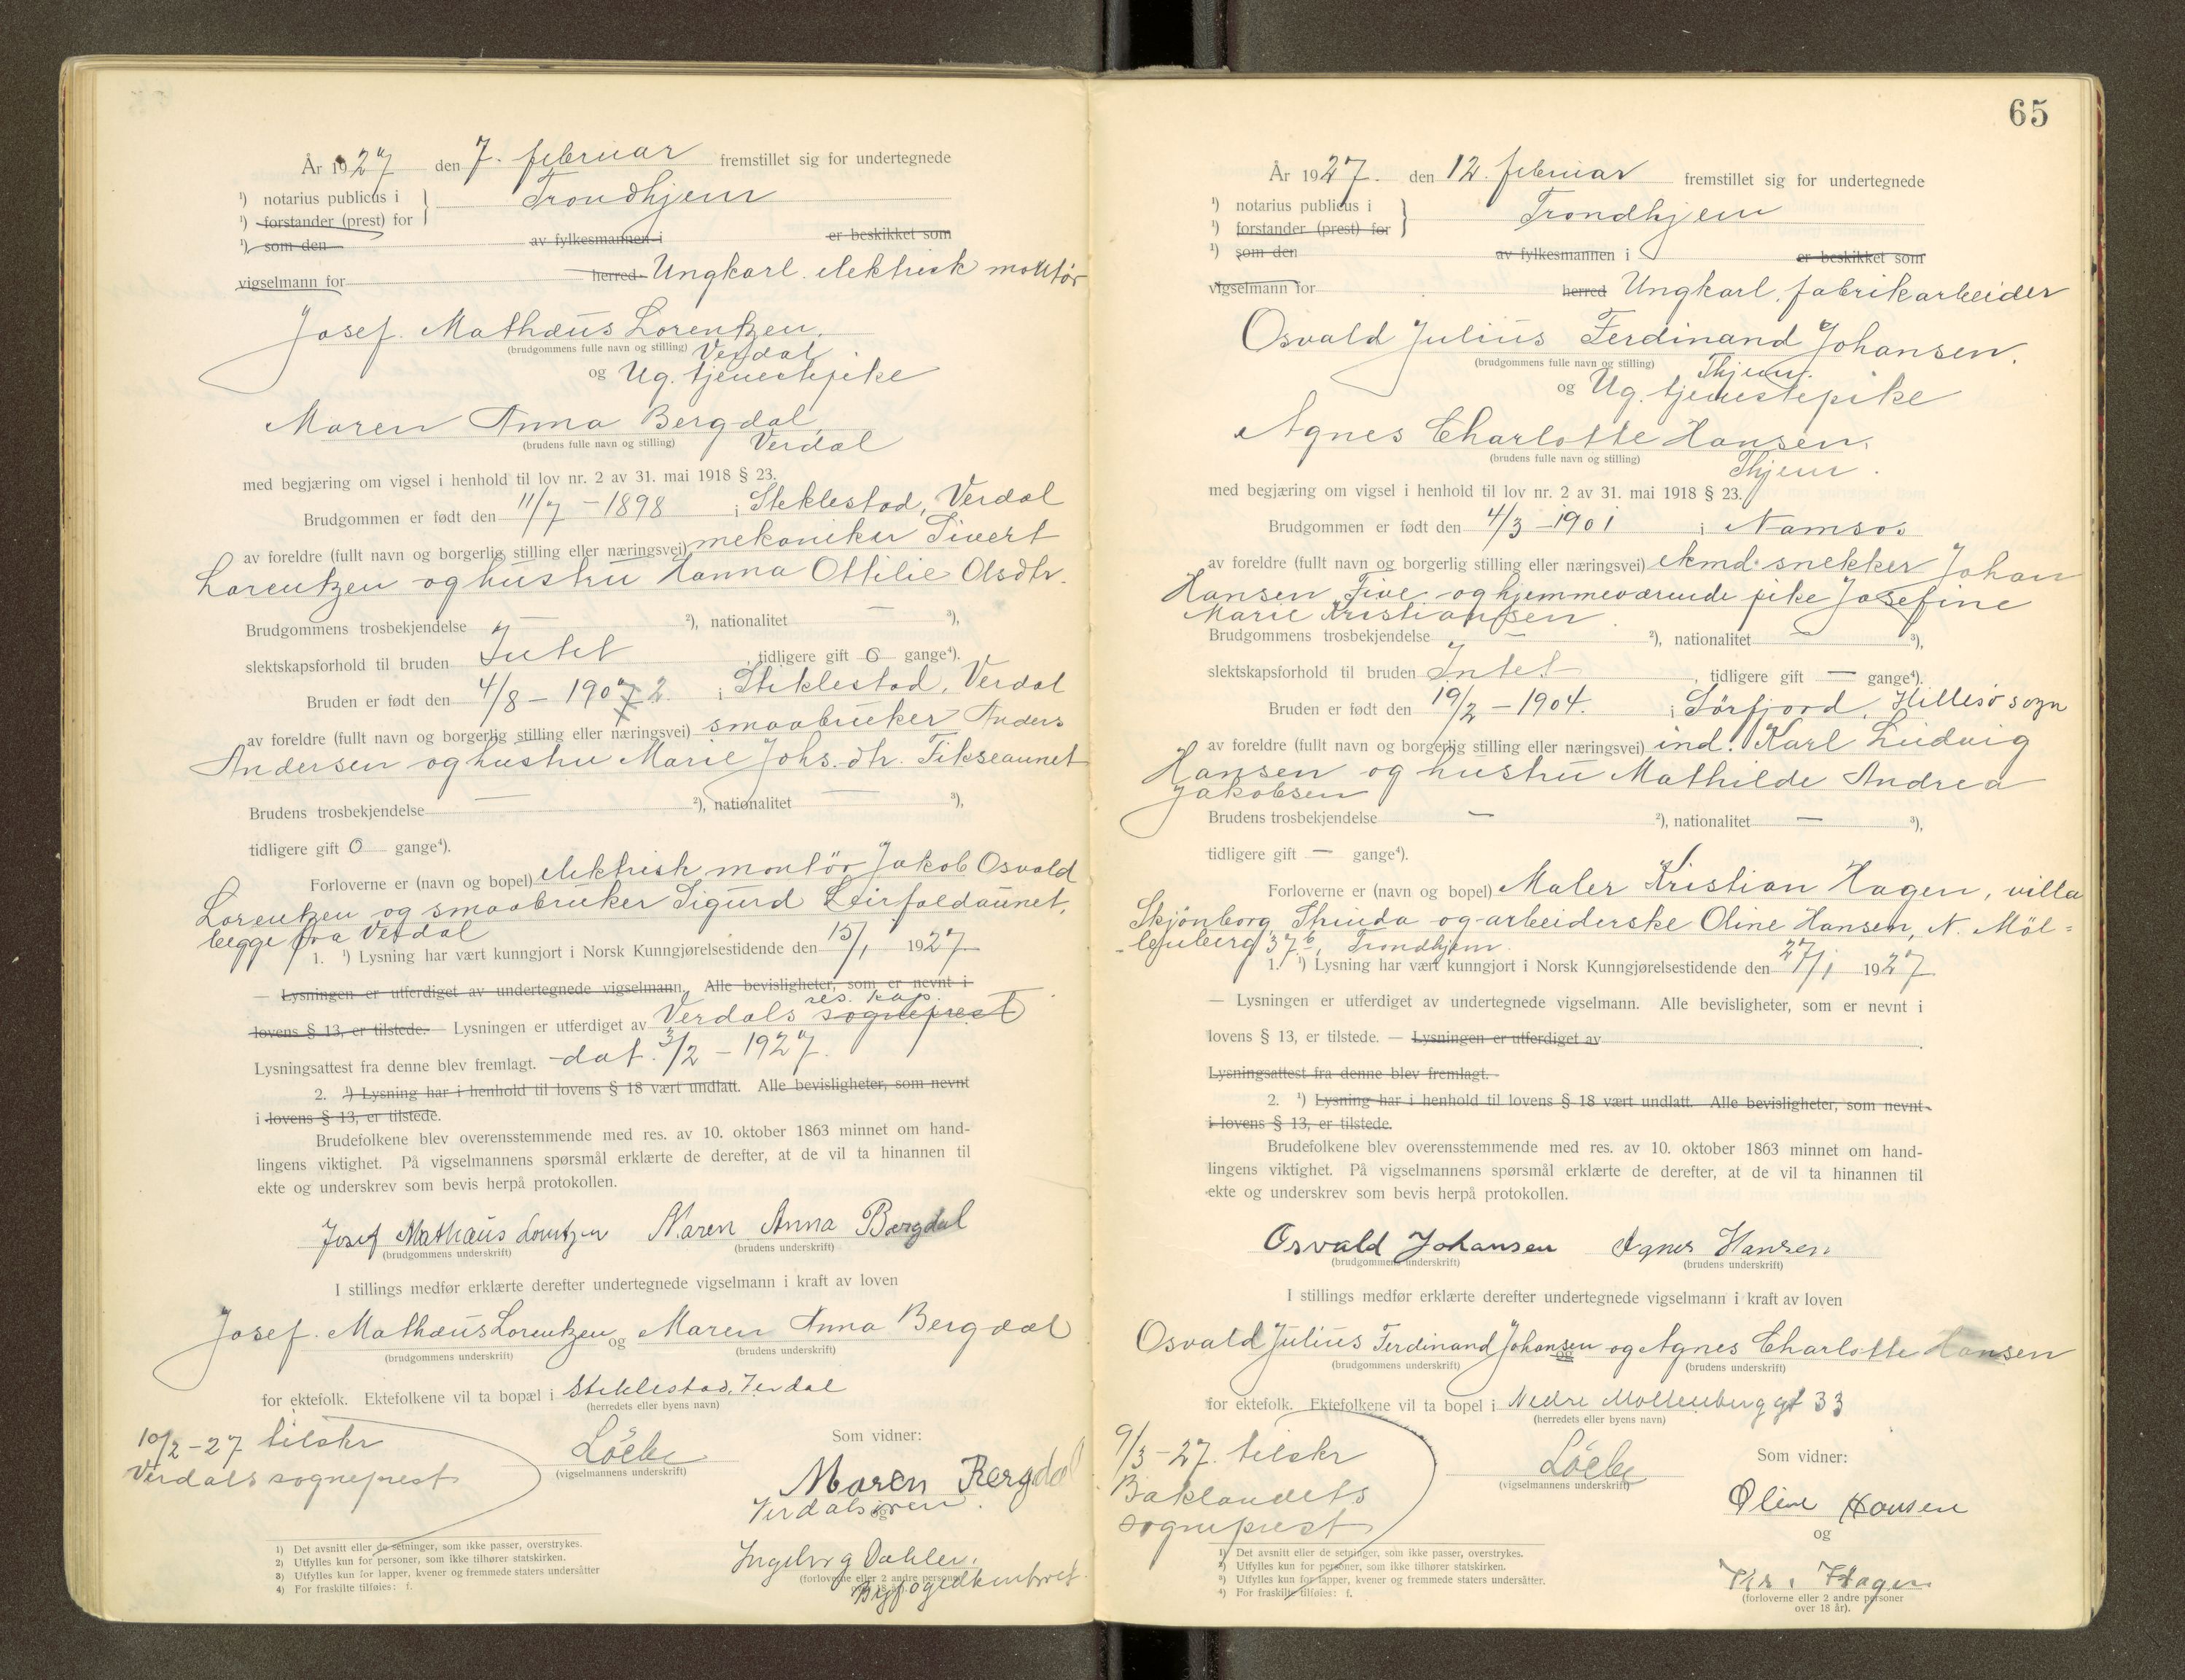 År 1927 den 7. februar fremstillet sig for undertegnede
¹) notarius publicus i
¹) forstander (prest) for } Trondhjem
¹) som den av fylkesmannen i er beskikket som
vigselmann for herred Ungkarl. elektrisk montør
Josef. Mathæus Lorentzen,
(brudgommens fulle navn og stilling) Verdal
og Ug. tjenestepike
Maren Anna Bergdal,
(brudens fulle navn og stilling) Verdal
med begjæring om vigsel i henhold til lov nr. 2 av 31. mai 1918 § 23.
Brudgommen er født den 11/7 - 1898 i Steklestad, Verdal
av foreldre (fullt navn og borgerlig stilling eller næringsvei) mekaniker Sivert
Lorentzen og hustru Hanna Ottilie Olsdtr.
Brudgommens trosbekjendelse — ²), nationalitet — ³),
slektskapsforhold til bruden Intet, tidligere gift 0 gange⁴).
Bruden er født den 4/8 - 1907 2. i Steklestad, Verdal
av foreldre (fullt navn og borgerlig stilling eller næringsvei) smaabruker Anders
Andersen og hustru Marie Johs.dtr. Tikseaunet
Brudens trosbekjendelse — ²), nationalitet — ³),
tidligere gift 0 gange⁴).
Forloverne er (navn og bopel) elektrisk montör Jakob Osvald
Lorentzen og smaabruker Sigurd Leirfaldaunet,
begge fra Verdal
1. ¹) Lysning har vært kunngjort i Norsk Kunngjørelsestidende den 15/1 1927
— Lysningen er utferdiget av undertegnede vigselmann. Alle bevisligheter, som er nevnt i
res. kap.
lovens § 13, er tilstede. — Lysningen er utferdiget av Verdals sogneprest
Lysningsattest fra denne blev fremlagt. - dat. 3/2 - 1927.
2. ¹) Lysning har i henhold til lovens § 18 vært undlatt. Alle bevisligheter, som nevnt
i lovens § 13, er tilstede.
Brudefolkene blev overensstemmende med res. av 10. oktober 1863 minnet om hand-
lingens viktighet. På vigselmannens spørsmål erklærte de derefter, at de vil ta hinannen til
ekte og underskrev som bevis herpå protokollen.
Josef Mathæus Lorentzen Maren Anna Bergdal
(brudgommens underskrift) (brudens underskrift)
I stillings medfør erklærte derefter undertegnede vigselmann i kraft av loven
Josef. Mathæus Lorentzen og Maren Anna Bergdal
(brudgommens underskrift) (brudens underskrift)
for ektefolk. Ektefolkene vil ta bopæl i Steklestad, Verdal
(herredets eller byens navn)
10/2-27 tilskr
Verdals sogneprest
Löebe
(vigselmannens underskrift)
Som vidner:
Maren Bergdal
Verdalsøren.
og
Ingeborg Dahlen,
(forloverne eller 2 andre personer
Byfogedkontoret.
1) Det avsnitt eller de setninger, som ikke passer, overstrykes.
2) Utfylles kun for personer, som ikke tilhører statskirken.
3) Utfylles kun for lapper, kvener og fremmede staters undersåtter
4) For fraskilte tilføies: f.
65
År 1927. den 12. februar fremstillet sig for undertegnede
¹) notarius publicus i
¹) forstander (prest) for } Trondhjem
¹) som den av fylkesmannen i er beskikket som
vigselmann for herred Ungkarl, fabrikarbeider
Osvald Julius Ferdinand Johansen.
(brudgommens fulle navn og stilling) Thjem.
og Ug. tjenestepike
Agnes Charlotte Hansen,
(brudens fulle navn og stilling) Thjem.
med begjæring om vigsel i henhold til lov nr. 2 av 31. mai 1918 § 23.
Brudgommen er født den 4/3 - 1901 i Namsos
av foreldre (fullt navn og borgerlig stilling eller næringsvei) ekmd. snekker Johan
Hansen Five og hjemmeværende pike Josefine
Marie Kristiansen.
Brudgommens trosbekjendelse — ²), nationalitet — ³),
slektskapsforhold til bruden Intet, tidligere gift — gange⁴).
Bruden er født den 19/2 - 1904. i Sørfjord, Hillesø sogn
av foreldre (fullt navn og borgerlig stilling eller næringsvei) ind. Karl Ludvig
Hansen og hustru Mathilde Andrea
Jakobsen
Brudens trosbekjendelse — ²), nationalitet — ³),
tidligere gift — gange⁴).
Forloverne er (navn og bopel) Maler Kristian Hagen, villa
Skjönborg, Strinda og arbeiderske Oline Hansen, N. Möl=
-lenberg 37 b, Trondhjem.
1. ¹) Lysning har vært kunngjort i Norsk Kunngjørelsestidende den 27/1 1927
— Lysningen er utferdiget av undertegnede vigselmann. Alle bevisligheter, som er nevnt i
lovens § 13, er tilstede. — Lysningen er utferdiget av
Lysningsattest fra denne blev fremlagt.
2. ¹) Lysning har i henhold til lovens § 18 vært undlatt. Alle bevisligheter, som nevnt
i lovens § 13, er tilstede.
Brudefolkene blev overensstemmende med res. av 10. oktober 1863 minnet om hand-
lingens viktighet. På vigselmannens spørsmål erklærte de derefter, at de vil ta hinannen til
ekte og underskrev som bevis herpå protokollen.
Osvald Johansen Agnes Hansen
(brudgommens underskrift) (brudens underskrift)
I stillings medfør erklærte derefter undertegnede vigselmann i kraft av loven
Osvald Julius Ferdinand Johansen og Agnes Charlotte Hansen
(brudgommens underskrift) og (brudens underskrift)
for ektefolk. Ektefolkene vil ta bopel i Nedre Møllenberg gt 33
(herredets eller byens navn)
9/3-27. tilskr
Baklandets
sogneprest
Löebe
(vigselmannens underskrift)
Som vidner:
Oline Hansen
og
Kr. Hagen
(forloverne eller 2 andre personer
over 18 år).
¹) Det avsnitt eller de setninger, som ikke passer, overstrykes.
²) Utfylles kun for personer, som ikke tilhører statskirken.
³) Utfylles kun for lapper, kvener og fremmede staters undersåtter.
⁴) For fraskilte tilføies: f.